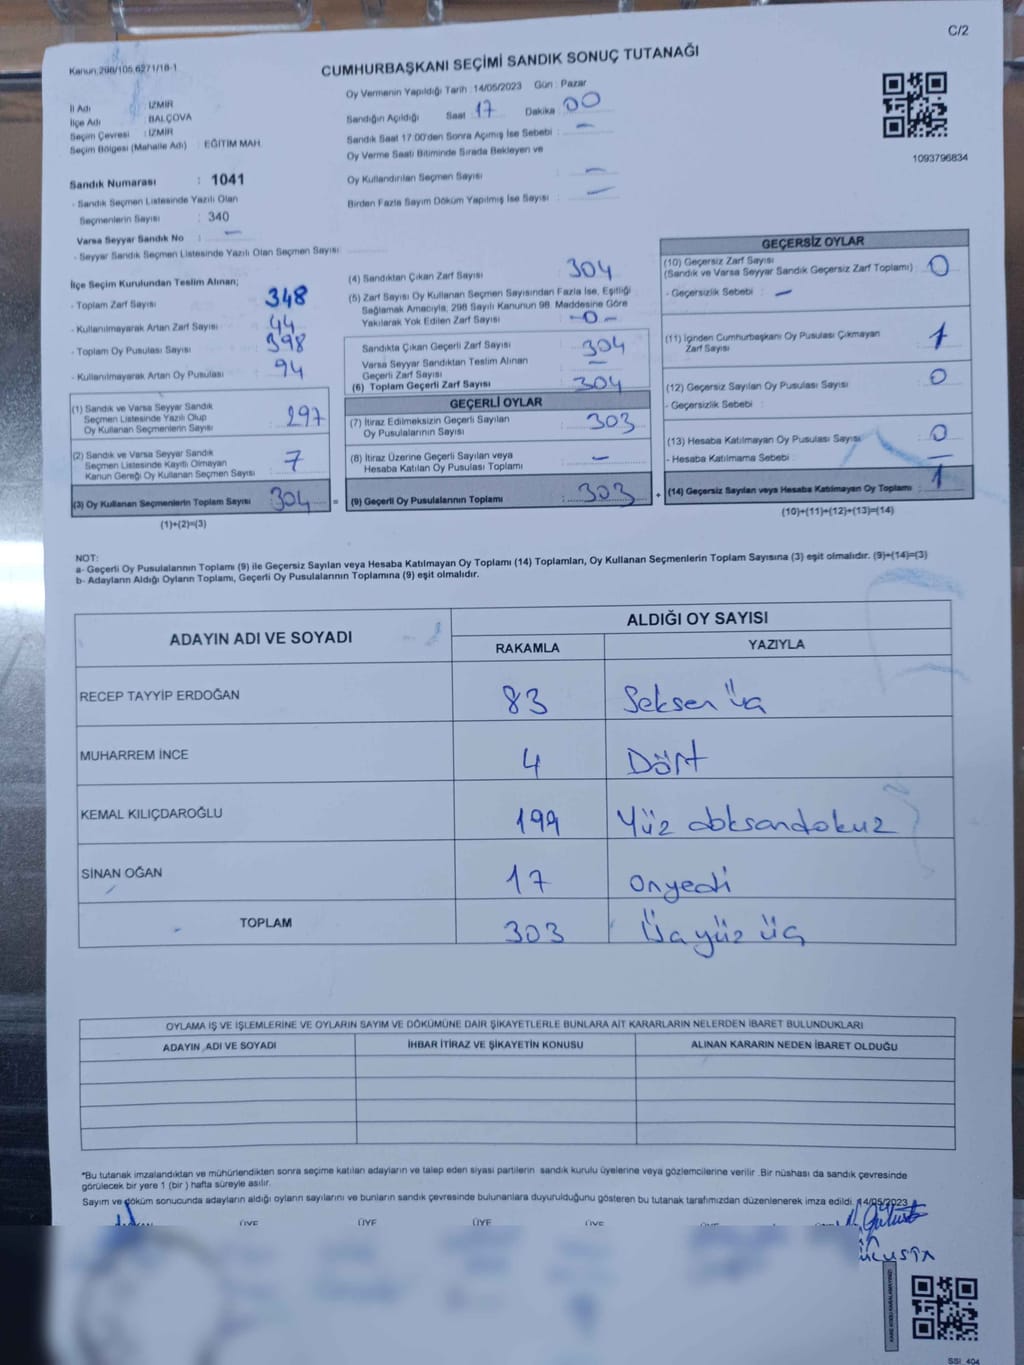 C/2
Kanun.298/105,6271/18-1
CUMHURBAŞKANI SEÇİMİ SANDIK SONUÇ TUTANAĞI
İl Adı : İZMİR
İlçe Adı : BALÇOVA
Seçim Çevresi : İZMİR
Seçim Bölgesi (Mahalle Adı) : EĞİTİM MAH.
Oy Vermenin Yapıldığı Tarih : 14/05/2023 Gün : Pazar
Sandığın Açıldığı Saat : 17 Dakika : 00
Sandık Saat 17:00'den Sonra Açmış İse Sebebi : —
Oy Verme Saati Bitiminde Sırada Bekleyen ve
Oy Kullandırılan Seçmen Sayısı : —
Birden Fazla Sayım Döküm Yapılmış İse Sayısı : —
1093796834
Sandık Numarası : 1041
- Sandık Seçmen Listesinde Yazılı Olan
Seçmenlerin Sayısı : 340
Varsa Seyyar Sandık No : —
- Seyyar Sandık Seçmen Listesinde Yazılı Olan Seçmen Sayısı:
İlçe Seçim Kurulundan Teslim Alınan;
- Toplam Zarf Sayısı : 348
- Kullanılmayarak Artan Zarf Sayısı : 44
- Toplam Oy Pusulası Sayısı : 398
- Kullanılmayarak Artan Oy Pusulası : 94
(1) Sandık ve Varsa Seyyar Sandık
Seçmen Listesinde Yazılı Olup
Oy Kullanan Seçmenlerin Sayısı : 297
(2) Sandık ve Varsa Seyyar Sandık
Seçmen Listesinde Kayıtlı Olmayan
Kanun Gereği Oy Kullanan Seçmen Sayısı : 7
(3) Oy Kullanan Seçmenlerin Toplam Sayısı : 304 =
(1)+(2)=(3)
(4) Sandıktan Çıkan Zarf Sayısı : 304
(5) Zarf Sayısı Oy Kullanan Seçmen Sayısından Fazla İse, Eşitliği
Sağlamak Amacıyla, 298 Sayılı Kanunun 98. Maddesine Göre
Yakılarak Yok Edilen Zarf Sayısı : -0-
Sandıkta Çıkan Geçerli Zarf Sayısı : 304
Varsa Seyyar Sandıktan Teslim Alınan
Geçerli Zarf Sayısı : —
(6) Toplam Geçerli Zarf Sayısı : 304
GEÇERLİ OYLAR
(7) İtiraz Edilmeksizin Geçerli Sayılan
Oy Pusulalarının Sayısı : 303
(8) İtiraz Üzerine Geçerli Sayılan veya
Hesaba Katılan Oy Pusulası Toplamı : —
(9) Geçerli Oy Pusulalarının Toplamı : 303 +
GEÇERSİZ OYLAR
(10) Geçersiz Zarf Sayısı
(Sandık ve Varsa Seyyar Sandık Geçersiz Zarf Toplamı) : 0
- Geçersizlik Sebebi : —
(11) İçinden Cumhurbaşkanı Oy Pusulası Çıkmayan
Zarf Sayısı : 1
(12) Geçersiz Sayılan Oy Pusulası Sayısı : 0
- Geçersizlik Sebebi :
(13) Hesaba Katılmayan Oy Pusulası Sayısı : 0
- Hesaba Katılmama Sebebi : —
(14) Geçersiz Sayılan veya Hesaba Katılmayan Oy Toplamı : 1
(10)+(11)+(12)+(13)=(14)
NOT:
a- Geçerli Oy Pusulalarının Toplamı (9) ile Geçersiz Sayılan veya Hesaba Katılmayan Oy Toplamı (14) Toplamları, Oy Kullanan Seçmenlerin Toplam Sayısına (3) eşit olmalıdır. (9)+(14)=(3)
b- Adayların Aldığı Oyların Toplamı, Geçerli Oy Pusulalarının Toplamına (9) eşit olmalıdır.
ADAYIN ADI VE SOYADI
ALDIĞI OY SAYISI
RAKAMLA YAZIYLA
RECEP TAYYİP ERDOĞAN 83 Seksen üç
MUHARREM İNCE 4 Dört
KEMAL KILIÇDAROĞLU 199 Yüz doksandokuz
SİNAN OĞAN 17 onyedi
TOPLAM 303 Üçyüz üç
OYLAMA İŞ VE İŞLEMLERİNE VE OYLARIN SAYIM VE DÖKÜMÜNE DAİR ŞİKAYETLERLE BUNLARA AİT KARARLARIN NELERDEN İBARET BULUNDUKLARI
ADAYIN ADI VE SOYADI İHBAR İTİRAZ VE ŞİKAYETİN KONUSU ALINAN KARARIN NEDEN İBARET OLDUĞU
*Bu tutanak imzalandıktan ve mühürlendikten sonra seçime katılan adayların ve talep eden siyasi partilerin sandık kurulu üyelerine veya gözlemcilerine verilir. Bir nüshası da sandık çevresinde
görülecek bir yere 1 (bir) hafta süreyle asılır.
Sayım ve döküm sonucunda adayların aldığı oyların sayılarını ve bunların sandık çevresinde bulunanlara duyurulduğunu gösteren bu tutanak tarafımızdan düzenlenerek imza edildi. 14/05/2023
ÜYE ÜYE ÜYE ÜYE ÜYE
SSİ_404